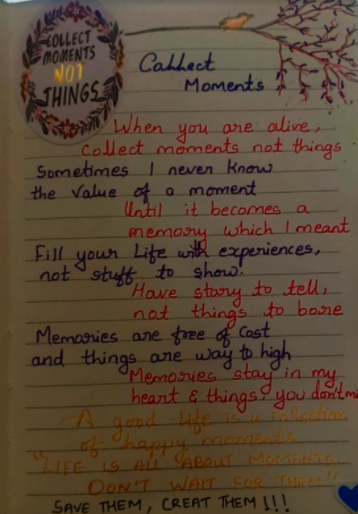 COLLECT
MOMENTS
NOT
THINGS
Collect
Moments
When you are alive,
collect moments not things
Sometimes I never know
the value of a moment
Until it becomes a
memory which I meant
Fill your Life with experiences,
not stuff to show.
Have story to tell,
not things to bore
Memories are free of Cost
and things are way to high
Memories stay in my
heart & things? you don't
A good life is a collection
of happy moments
"LIFE IS ALL ABOUT MOMENTS,
DON'T WAIT FOR THEM"
SAVE THEM, CREAT THEM !!!